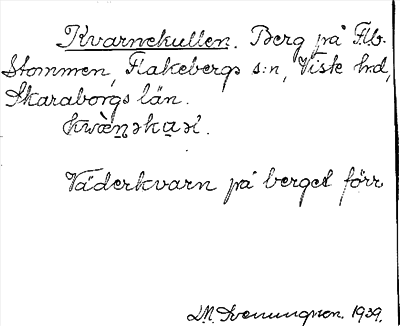 Kvarnekullen. Berg på Flb.
Stommen, Flakebergs s:n, Viste hd,
Skaraborgs län.
Väderkvarn på berget förr
D.M. Svenungsson. 1939.